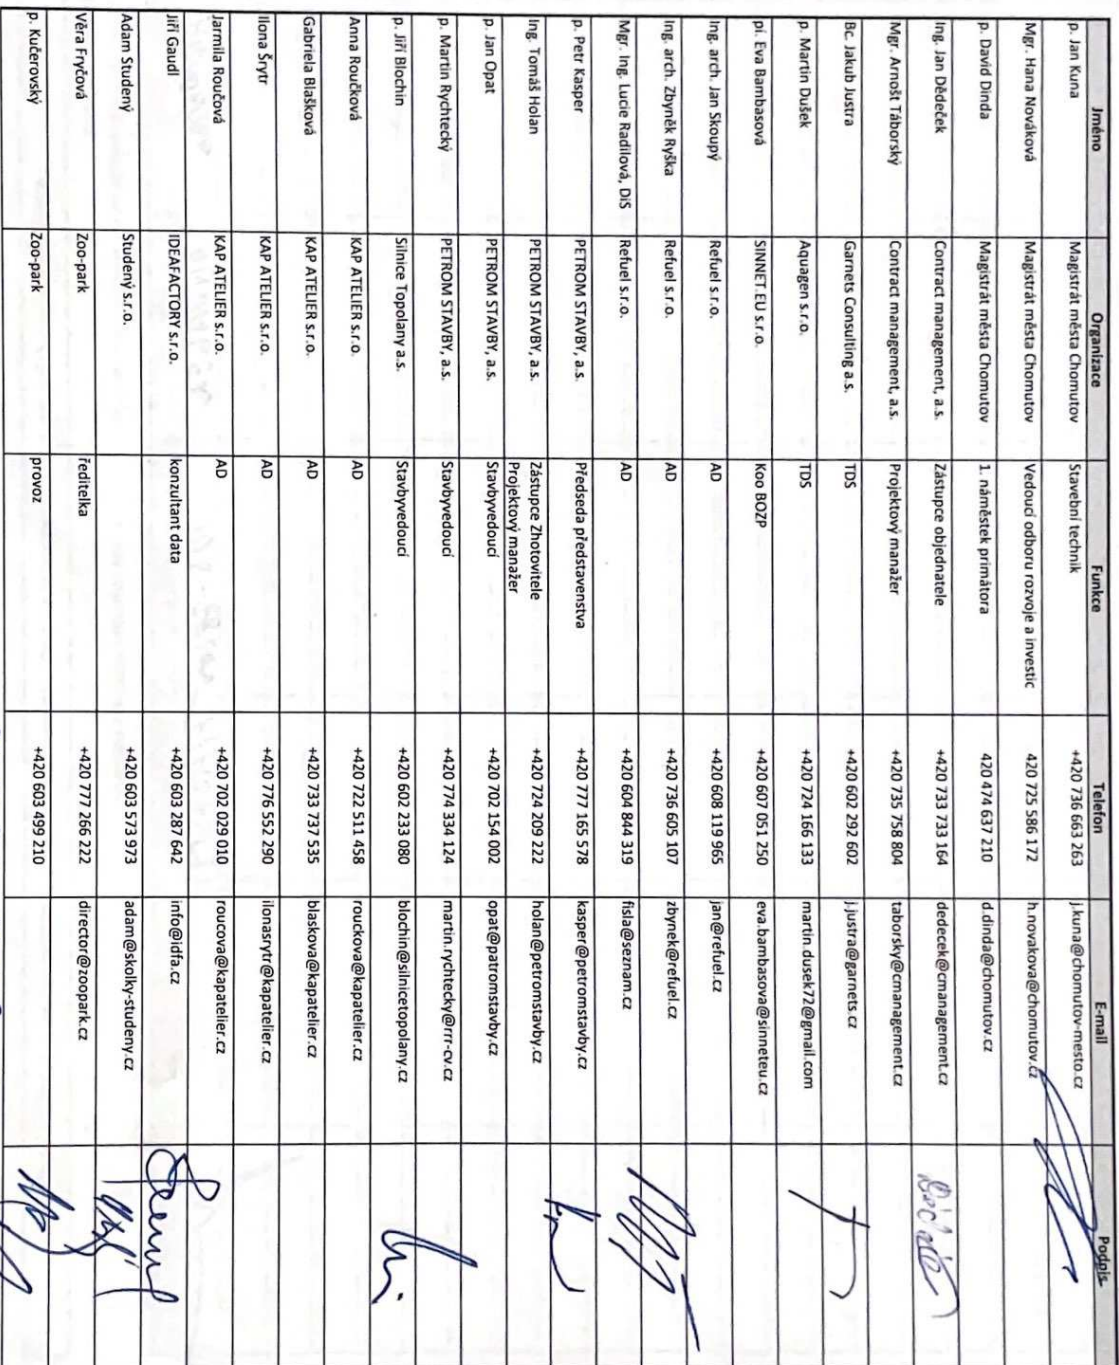 Jméno Organizace Funkce Telefon E-mail Podpis
p. Jan Kuna Magistrát města Chomutov Stavební technik +420 736 663 263 j.kuna@chomutov-mesto.cz
Mgr. Hana Nováková Magistrát města Chomutov Vedoucí odboru rozvoje a investic 420 725 586 172 h.novakova@chomutov.cz
p. David Dinda Magistrát města Chomutov 1. náměstek primátora 420 474 637 210 d.dinda@chomutov.cz
Ing. Jan Dědeček Contract management, a.s. Zástupce objednatele +420 733 733 164 dedecek@cmanagement.cz
Mgr. Arnošt Táborský Contract management, a.s. Projektový manažer +420 735 758 804 taborsky@cmanagement.cz
Bc. Jakub Justra Garnets Consulting a.s. TDS +420 602 292 602 j.justra@garnets.cz
p. Martin Dušek Aquagen s.r.o. TDS +420 724 166 133 martin.dusek72@gmail.com
pí. Eva Bambasová SINNET.EU s.r.o. Koo BOZP +420 607 051 250 eva.bambasova@sinneteu.cz
Ing. arch. Jan Skoupý Refuel s.r.o. AD +420 608 119 965 jan@refuel.cz
Ing. arch. Zbyněk Ryška Refuel s.r.o. AD +420 736 605 107 zbynek@refuel.cz
Mgr. Ing. Lucie Radilová, DiS Refuel s.r.o. AD +420 604 844 319 fisla@seznam.cz
p. Petr Kasper PETROM STAVBY, a.s. Předseda představenstva +420 777 165 578 kasper@petromstavby.cz
Ing. Tomáš Holan PETROM STAVBY, a.s. Zástupce Zhotovitele +420 724 209 222 holan@petromstavby.cz
Projektový manažer
p. Jan Opat PETROM STAVBY, a.s. Stavbyvedoucí +420 702 154 002 opat@patromstavby.cz
p. Martin Rychtecký PETROM STAVBY, a.s. Stavbyvedoucí +420 774 334 124 martin.rychtecky@rrr-cv.cz
p. Jiří Blochin Silnice Topolany a.s. Stavbyvedoucí +420 602 233 080 blochin@silnicetopolany.cz
Anna Roučková KAP ATELIER s.r.o. AD +420 722 511 458 rouckova@kapatelier.cz
Gabriela Blašková KAP ATELIER s.r.o. AD +420 733 737 535 blaskova@kapatelier.cz
Ilona Šrytr KAP ATELIER s.r.o. AD +420 776 552 290 ilonasrytr@kapatelier.cz
Jarmila Roučová KAP ATELIER s.r.o. AD +420 702 029 010 roucova@kapatelier.cz
Jiří Gaudl IDEAFACTORY s.r.o. konzultant data +420 603 287 642 info@idfa.cz
Adam Studený Studený s.r.o. +420 603 573 973 adam@skolky-studeny.cz
Věra Fryčová Zoo-park ředitelka +420 777 266 222 director@zoopark.cz
p. Kučerovský Zoo-park provoz +420 603 499 210